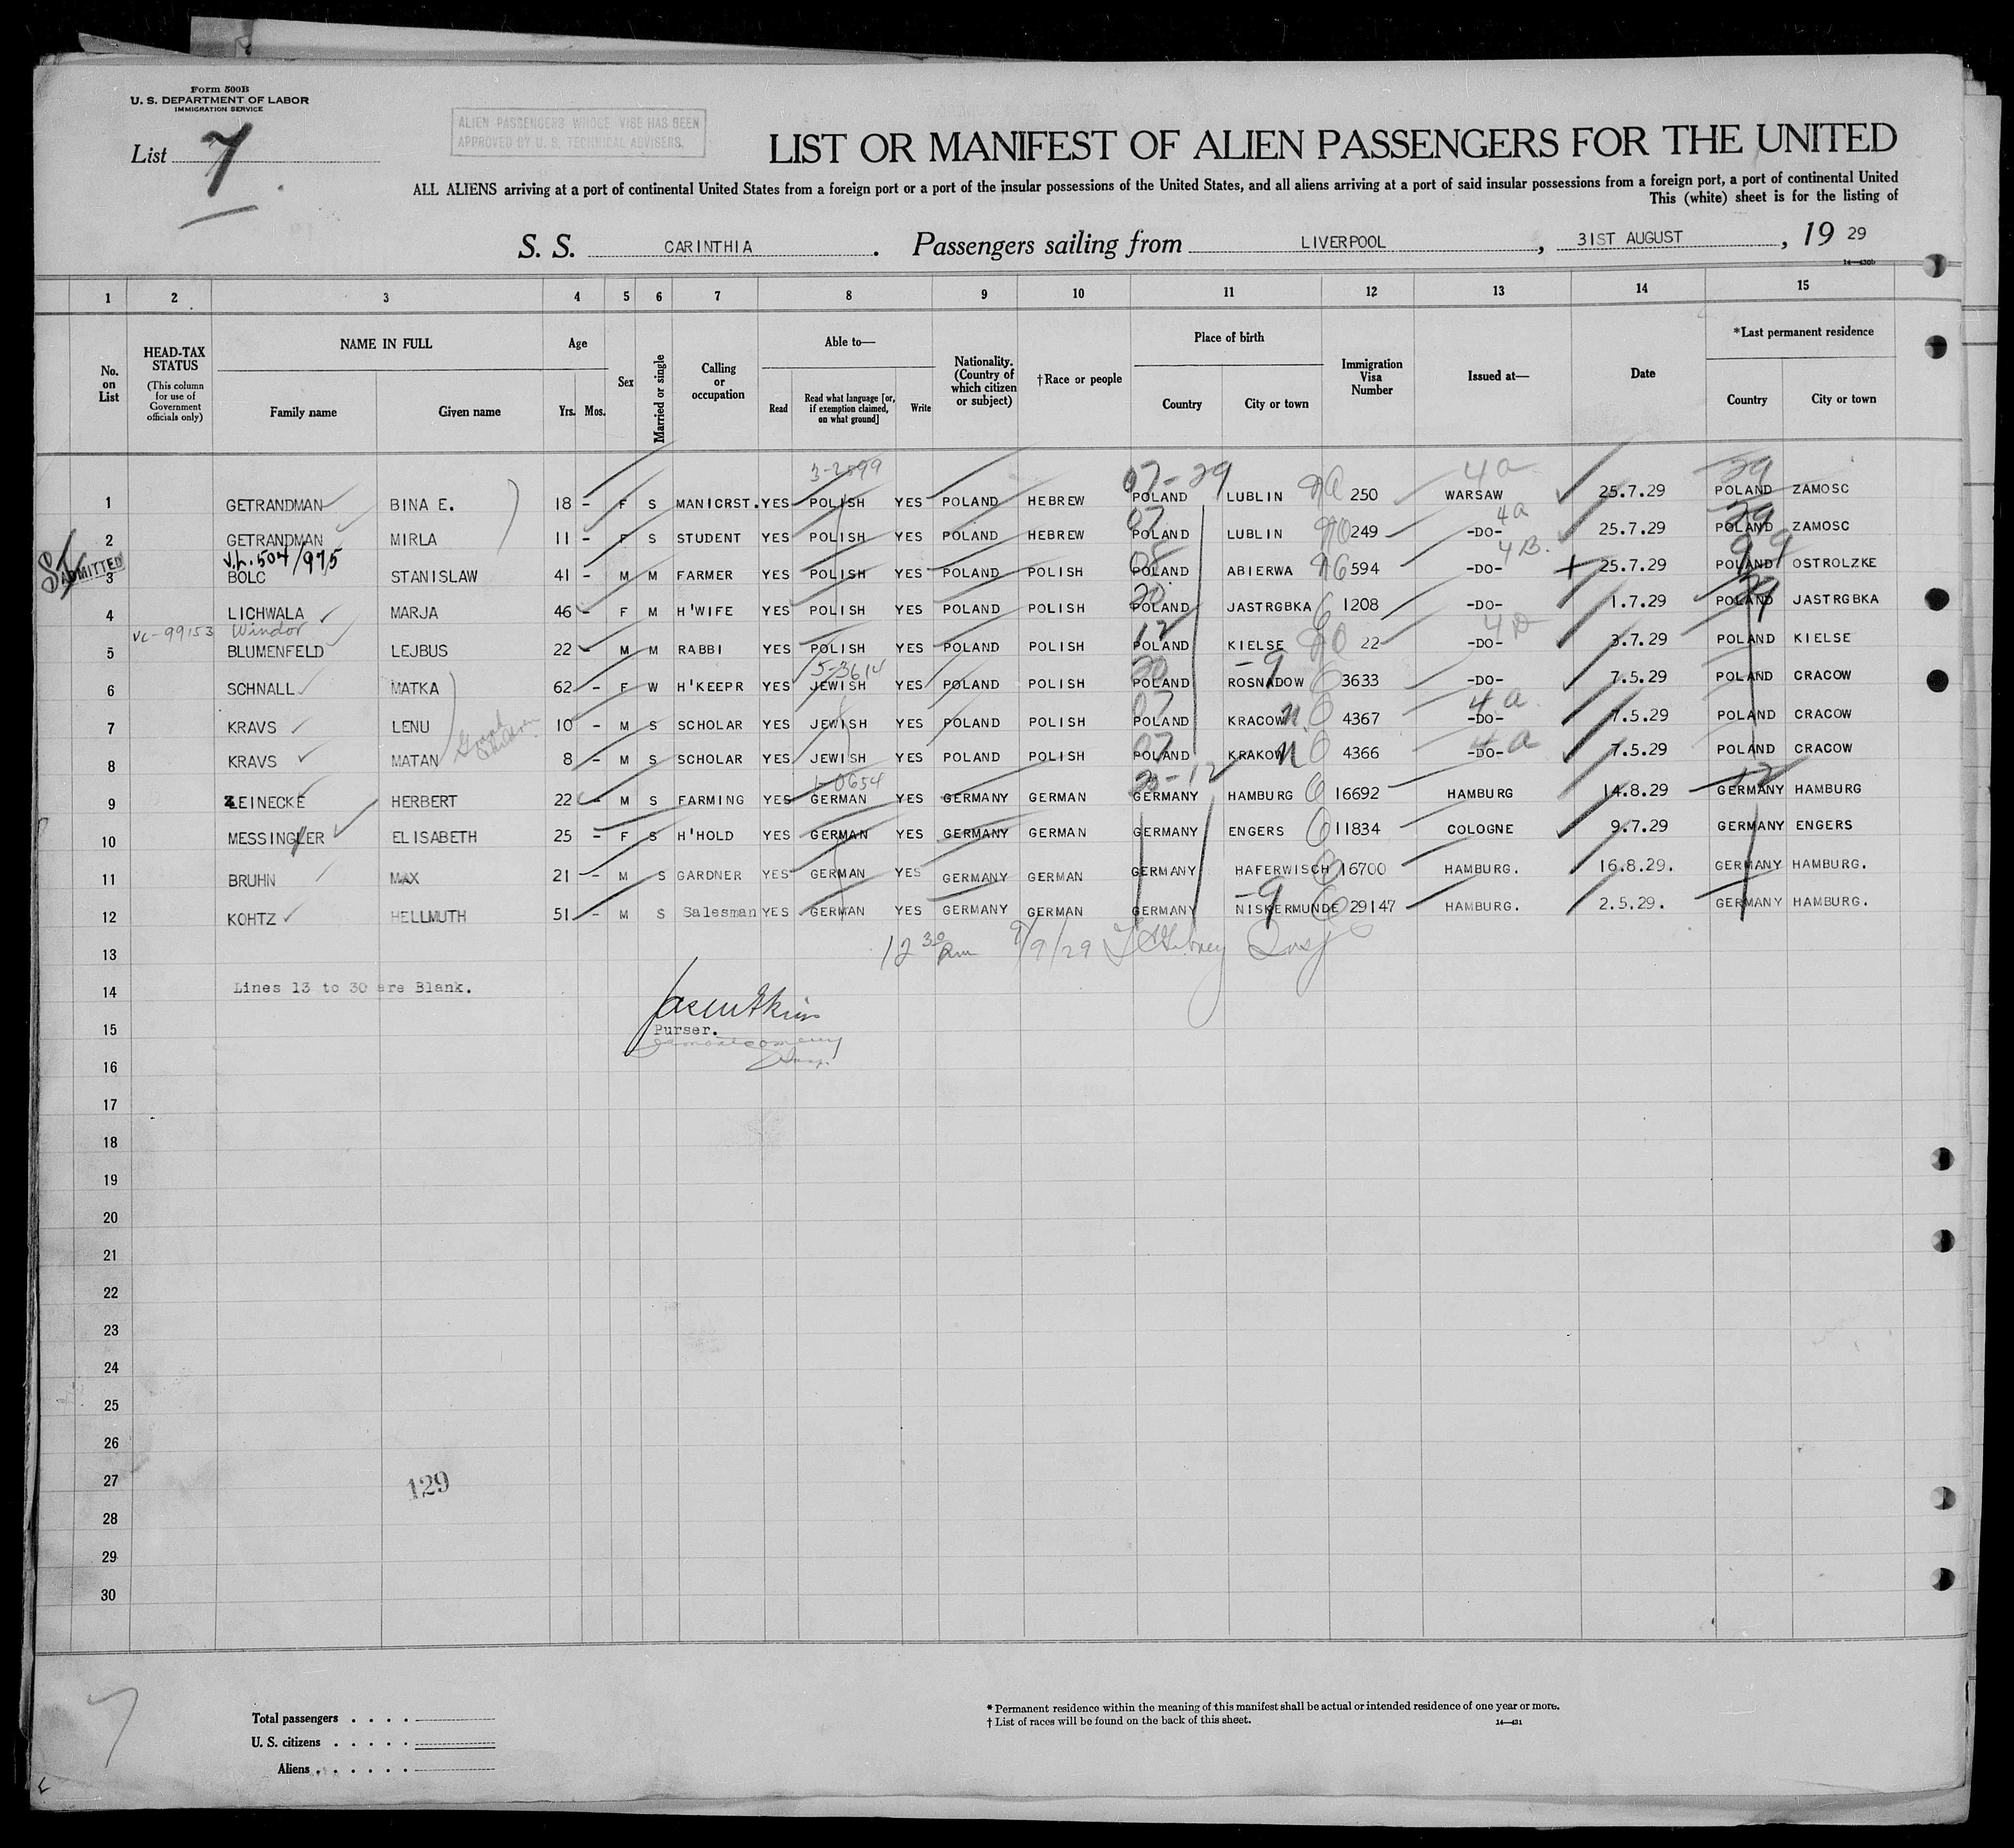 Form 500B
U. S. DEPARTMENT OF LABOR
IMMIGRATION SERVICE
List 7
ALIEN PASSENGERS WHOSE VISE HAS BEEN
APPROVED BY U. S. TECHNICAL ADVISERS.
LIST OR MANIFEST OF ALIEN PASSENGERS FOR THE UNITED
ALL ALIENS arriving at a port of continental United States from a foreign port or a port of the insular possessions of the United States, and all aliens arriving at a port of said insular possessions from a foreign port, a port of continental United
This (white) sheet is for the listing of
S. S. CARINTHIA. Passengers sailing from LIVERPOOL, 31ST AUGUST, 19 29
14—430b
1 2 3 4 5 6 7 8 9 10 11 12 13 14 15
No. on List
HEAD-TAX STATUS
(This column for use of Government officials only)
NAME IN FULL
Family name Given name
Age
Yrs. Mos.
Sex
Married or single
Calling or occupation
Able to—
Read
Read what language [or, if exemption claimed, on what ground]
Write
Nationality. (Country of which citizen or subject)
†Race or people
Place of birth
Country City or town
Immigration Visa Number
Issued at—
Date
*Last permanent residence
Country City or town
3-2599 07-29 4a 29
1 GETRANDMAN BINA E. 18 - F S MANICRST. YES POLISH YES POLAND HEBREW POLAND LUBLIN 250 WARSAW 25.7.29 POLAND ZAMOSC
07 4a 29
2 GETRANDMAN MIRLA 11 - F S STUDENT YES POLISH YES POLAND HEBREW POLAND LUBLIN 249 -DO- 25.7.29 POLAND ZAMOSC
ADMITTED V.L. 504/975 4B.
3 BOLC STANISLAW 41 - M M FARMER YES POLISH YES POLAND POLISH POLAND ABIERWA 594 -DO- 25.7.29 POLAND OSTROLZKE
20
4 LICHWALA MARJA 46 F M H'WIFE YES POLISH YES POLAND POLISH POLAND JASTRGBKA 1208 -DO- 1.7.29 POLAND JASTRGBKA
VC-99153 Windor 12 4D
5 BLUMENFELD LEJBUS 22 M M RABBI YES POLISH YES POLAND POLISH POLAND KIELSE 22 -DO- 3.7.29 POLAND KIELSE
5-3614 20 -9
6 SCHNALL MATKA 62 - F W H'KEEPR YES JEWISH YES POLAND POLISH POLAND ROSNADOW 3633 -DO- 7.5.29 POLAND CRACOW
07 4a
7 KRAVS LENU 10 - M S SCHOLAR YES JEWISH YES POLAND POLISH POLAND KRACOW 4367 -DO- 7.5.29 POLAND CRACOW
07 4a
8 KRAVS MATAN 8 - M S SCHOLAR YES JEWISH YES POLAND POLISH POLAND KRAKOW 4366 -DO- 7.5.29 POLAND CRACOW
1-0654 20-12 12
9 ZEINECKE HERBERT 22 - M S FARMING YES GERMAN YES GERMANY GERMAN GERMANY HAMBURG 16692 HAMBURG 14.8.29 GERMANY HAMBURG
10 MESSINGLER ELISABETH 25 - F S H'HOLD YES GERMAN YES GERMANY GERMAN GERMANY ENGERS 11834 COLOGNE 9.7.29 GERMANY ENGERS
11 BRUHN MAX 21 - M S GARDNER YES GERMAN YES GERMANY GERMAN GERMANY HAFERWISCH 16700 HAMBURG. 16.8.29. GERMANY HAMBURG.
-9
12 KOHTZ HELLMUTH 51 - M S Salesman YES GERMAN YES GERMANY GERMAN GERMANY NISKERMUNDE 29147 HAMBURG. 2.5.29. GERMANY HAMBURG.
13 12 30 pm 9/9/29
14 Lines 13 to 30 are Blank.
15 Purser.
16
17
18
19
20
21
22
23
24
25
26
27 129
28
29
30
Total passengers . . . .
U. S. citizens . . . . .
Aliens . . . . . .
* Permanent residence within the meaning of this manifest shall be actual or intended residence of one year or more.
† List of races will be found on the back of this sheet.
14—431